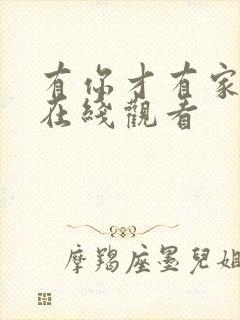 有你才有家
在綫觀看
摩羯座墨兒姐